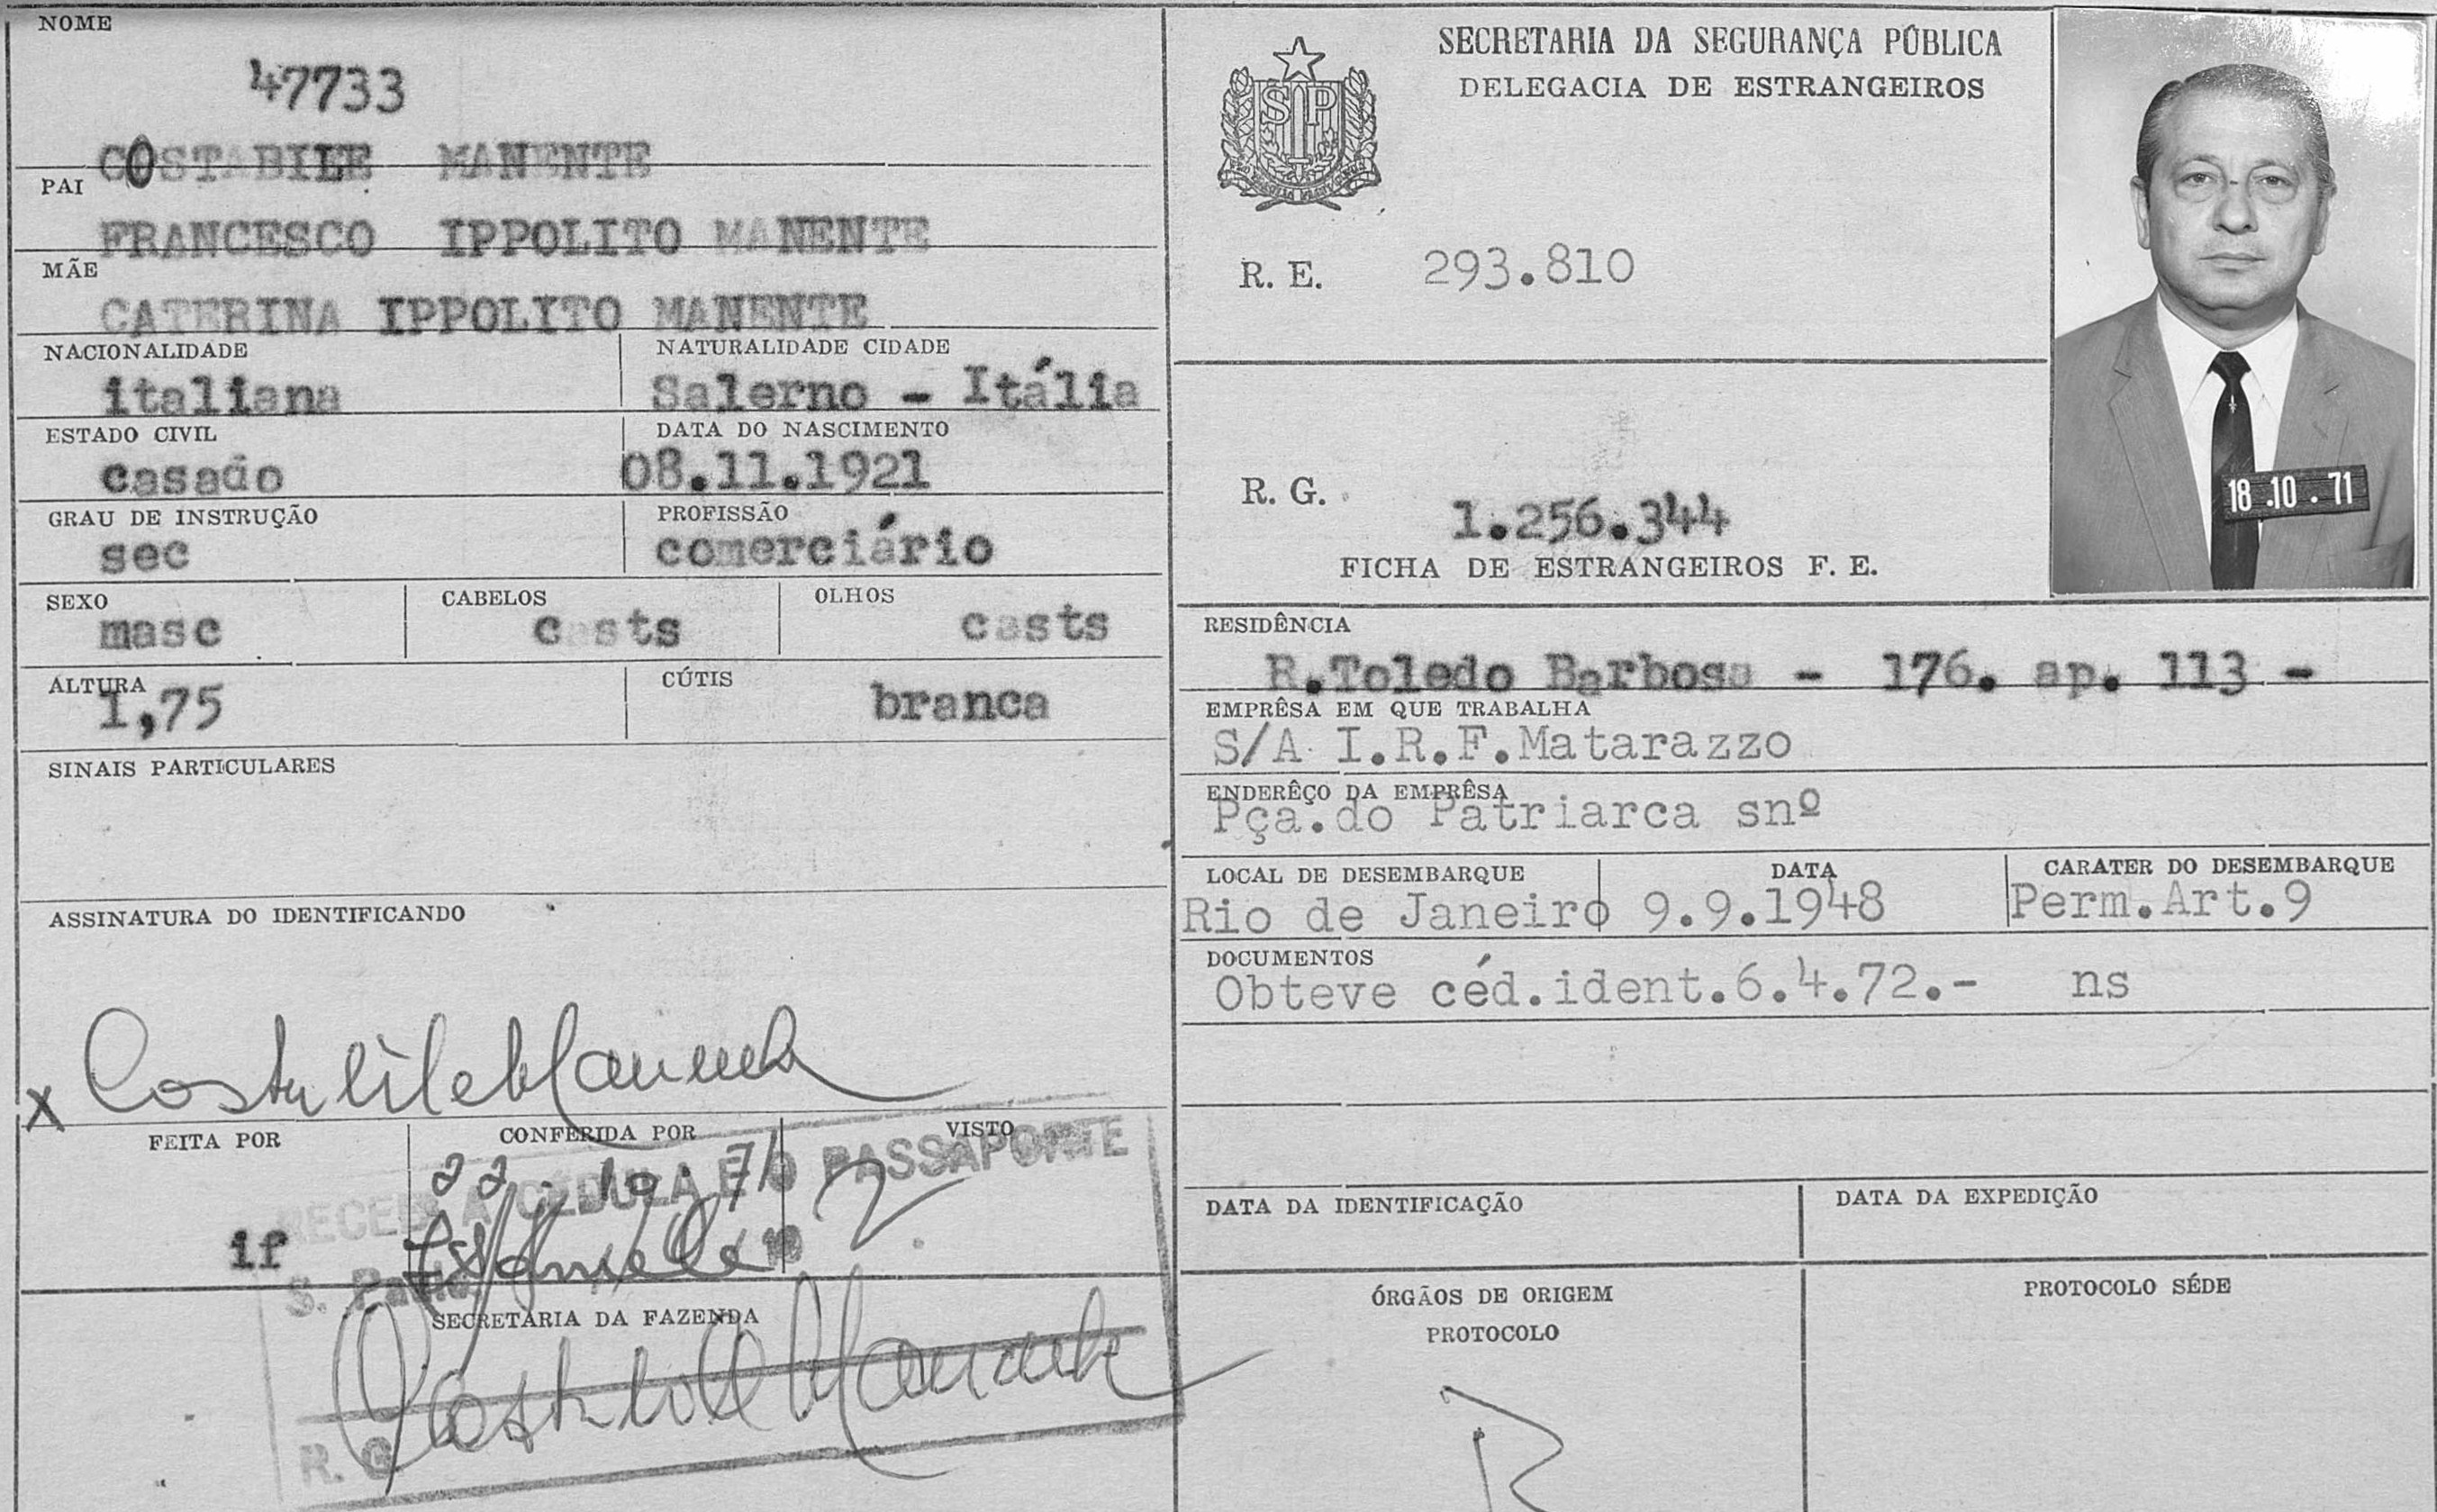 NOME
47733
COSTABILE MANENTE
PAI
FRANCESCO IPPOLITO MANENTE
MÃE
CATERINA IPPOLITO MANENTE
NACIONALIDADE
italiana
NATURALIDADE CIDADE
Salerno - Itália
ESTADO CIVIL
casado
DATA DO NASCIMENTO
08.11.1921
GRAU DE INSTRUÇÃO
sec
PROFISSÃO
comerciário
SEXO
masc
CABELOS
casts
OLHOS
casts
ALTURA
1,75
CÚTIS
branca
SINAIS PARTICULARES
ASSINATURA DO IDENTIFICANDO
X Costabile Manente
FEITA POR
if
CONFERIDA POR
22.10.71
VISTO
RECEBI A CÉDULA E O PASSAPORTE
S. Paulo
19
SECRETARIA DA FAZENDA
Costabile Manente
R. G.
SECRETARIA DA SEGURANÇA PÚBLICA
DELEGACIA DE ESTRANGEIROS
SP
R. E. 293.810
R. G. 1.256.344
FICHA DE ESTRANGEIROS F. E.
18.10.71
RESIDÊNCIA
R.Toledo Barbosa - 176. ap. 113 -
EMPRÊSA EM QUE TRABALHA
S/A I.R.F.Matarazzo
ENDERÊÇO DA EMPRÊSA
Pça.do Patriarca snº
LOCAL DE DESEMBARQUE
Rio de Janeiro
DATA
9.9.1948
CARATER DO DESEMBARQUE
Perm.Art.9
DOCUMENTOS
Obteve céd.ident.6.4.72.- ns
DATA DA IDENTIFICAÇÃO
DATA DA EXPEDIÇÃO
ÓRGÃOS DE ORIGEM
PROTOCOLO
PROTOCOLO SÉDE